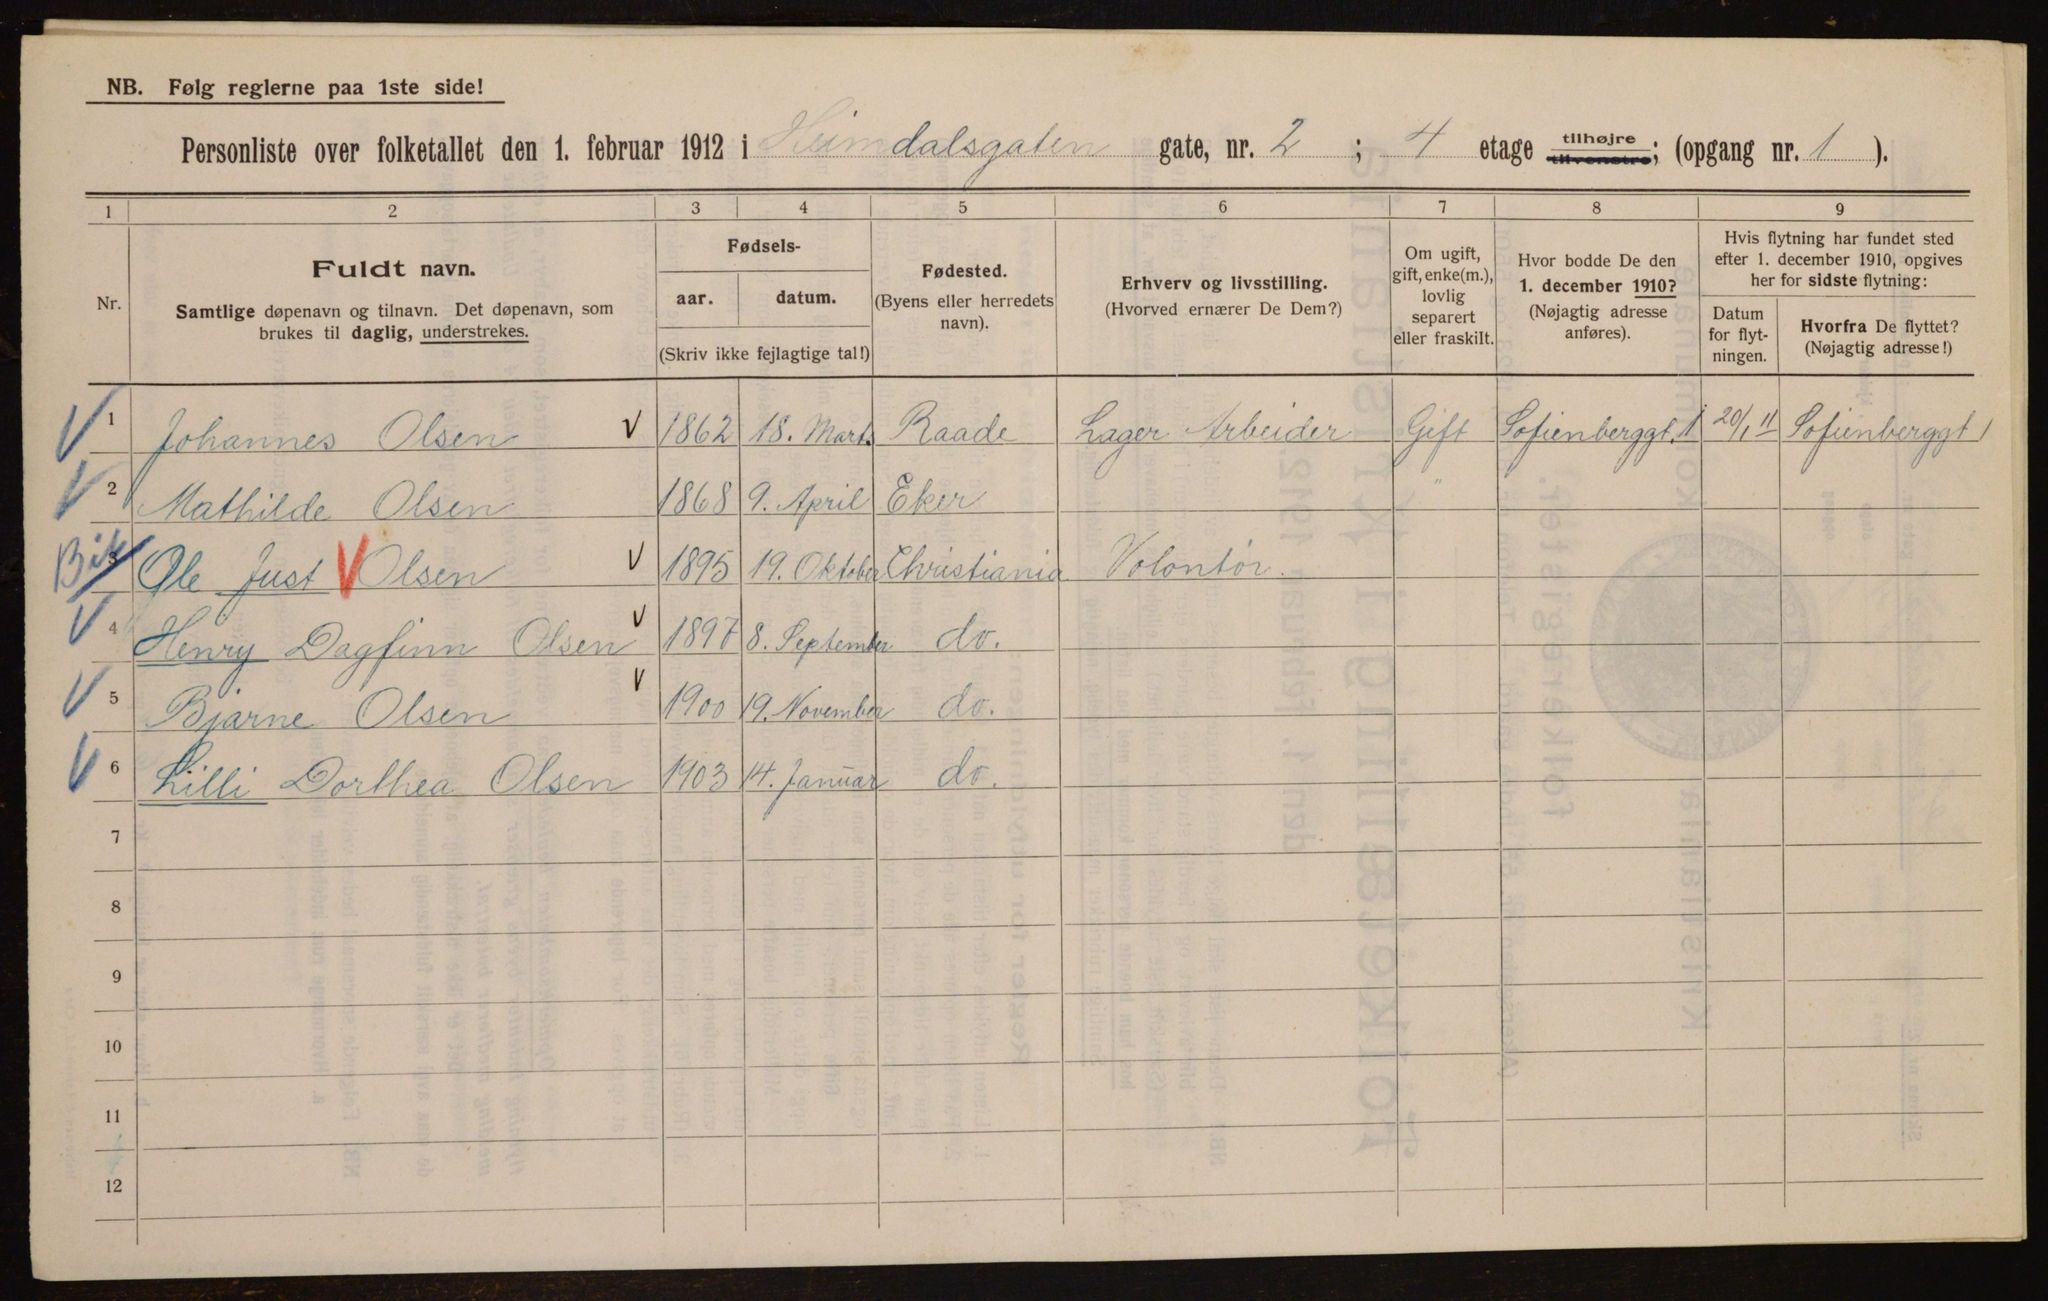 NB. Følg reglerne paa 1ste side!
Personliste over folketallet den 1. februar 1912 i Heimdalsgaten gate, nr. 2 ; 4 etage tilhøjre tilvenstre; (opgang nr. 1 ).
1 2 3 4 5 6 7 8 9
Nr.
Fuldt navn.
Samtlige døpenavn og tilnavn. Det døpenavn, som
brukes til daglig, understrekes.
Fødsels-
aar. datum.
(Skriv ikke fejlagtige tal!)
Fødested.
(Byens eller herredets
navn).
Erhverv og livsstilling.
(Hvorved ernærer De Dem?)
Om ugift,
gift, enke(m.),
lovlig
separert
eller fraskilt.
Hvor bodde De den
1. december 1910?
(Nøjagtig adresse
anføres).
Hvis flytning har fundet sted
efter 1. december 1910, opgives
her for sidste flytning:
Datum
for flyt-
ningen.
Hvorfra De flyttet?
(Nøjagtig adresse!)
V 1 Johannes Olsen V 1862 18. Marts Raade Lager Arbeider Gift Sofienberggt. 1 20/1 11 Sofienberggt 1
V 2 Mathilde Olsen 1868 9. April Eker "
3 Ole Just V Olsen V 1895 19. Oktober Christiania Volontør
V 4 Henry Dagfinn Olsen V 1897 8. September do.
V 5 Bjarne Olsen V 1900 19. November do.
V 6 Lilli Dorthea Olsen 1903 14. Januar do.
7
8
9
10
11
12